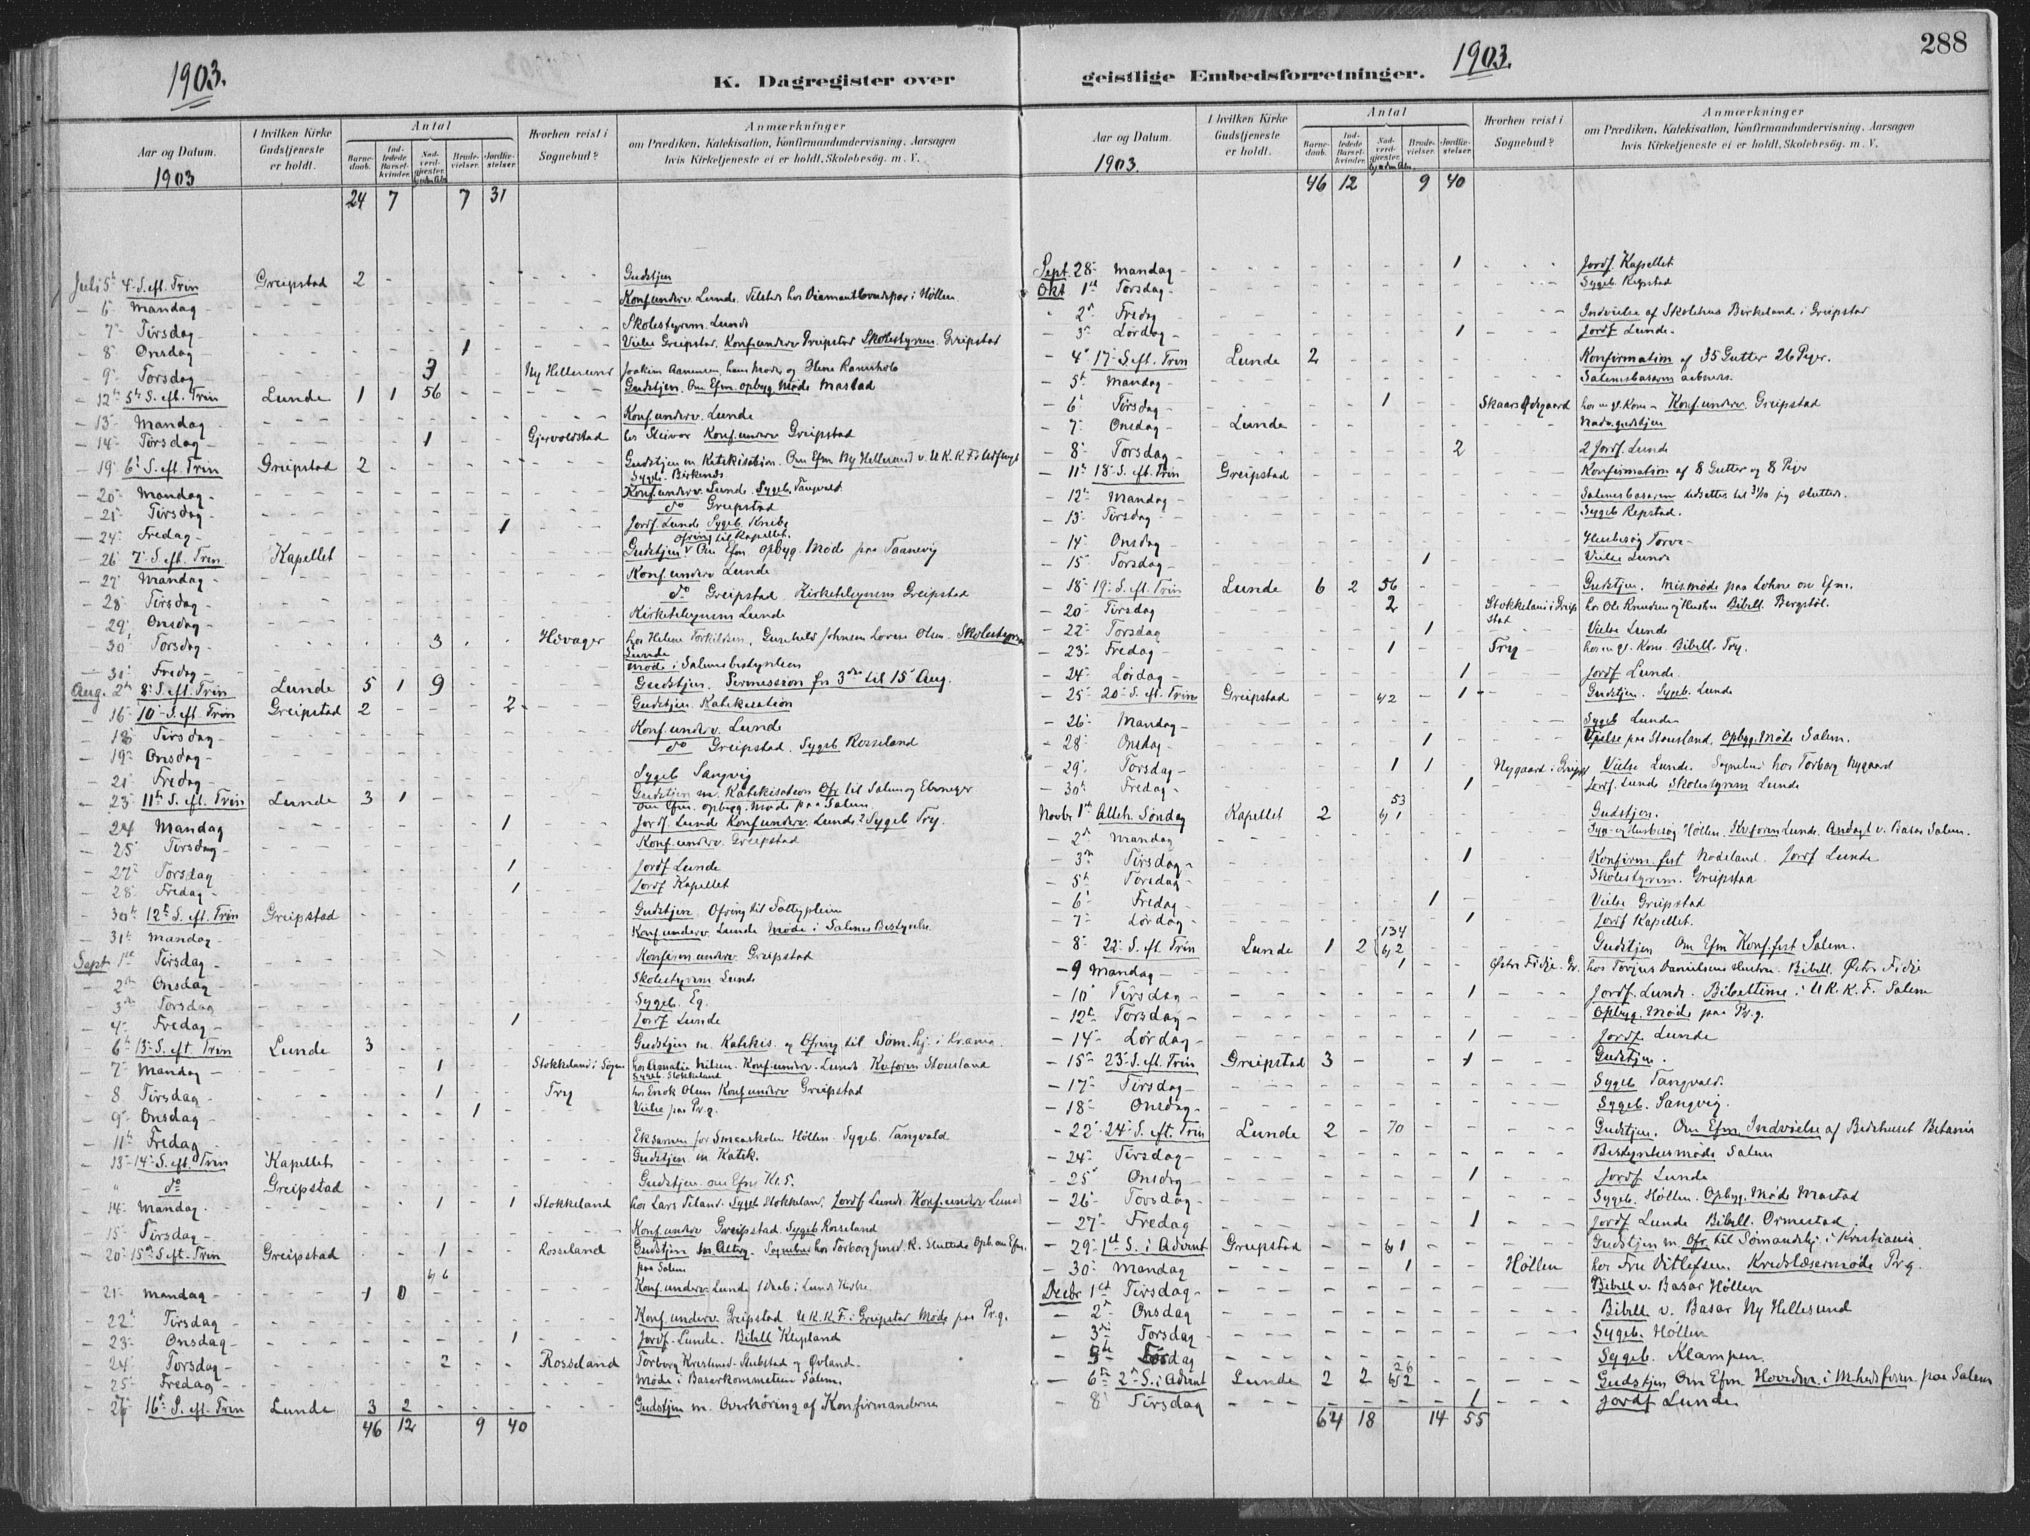 288
1903.
K. Dagregister over
Aar og Datum.
1903
I hvilken Kirke Gudstjeneste er holdt.
Antal
Barnedaab.
Indledede Barselkvinder.
Nadverdgjæster.
Brudevielser.
Jordfæstelser
Hvorhen reist i Sognebud?
Anmærkninger
om Prædiken, Katekisation, Konfirmandundervisning, Aarsagen
hvis Kirketjeneste ei er holdt, Skolebesøg. m. V.
24 7 7 31
Juli 5te 4. S. eft. Trin Greipstad 2 Gudstjen
- 6. Mandag Konf.underv. Lunde. Tilsted hos Diamantbrudepar i Høllen
- 7. Tirsdag - Skolestyrem. Lunde
- 8. Onsdag 1 Vielse Greipstad. Konf.underv Greipstad Skolestyrem. Greipstad
- 9. Torsdag - 3 Ny Hellesund Joakim Aanensen, hans Moder og
- 12te 5te S. eft. Trin Lunde 1 1 56 Gudstjen. Om Efm. opbyg. Møde Mastad
- 13. Mandag Konf.underv. Lunde
- 14. Torsdag 1 Gjervoldstad hos Konf.underv Greipstad
- 19. 6. S. eft. Trin Greipstad 2 Gudstjen m. Katekisation. Om Efm Ny Hellesund v. U.K.K.F.
Sygeb. Birkenes
- 20. Mandag - Konf.underv. Lunde. Sygeb. Tangvald
- 21. Tirsdag - do Greipstad
- 24. Fredag - 1 Jordf Lunde Sygeb. Knibe
Ofring til Kapellet.
- 26. 7. S. eft. Trin. Kapellet Gudstjen Om Efm opbyg. Møde paa Taanevig
- 27. Mandag - Konf.underv Lunde
- 28. Tirsdag - do Greipstad. Kirketilsynsm Greipstad
- 29. Onsdag - Kirketilsynsm Lunde
- 30. Torsdag - 3 Høvager hos Helene Torkildsen, Gunhild Johnsen Lovise Olsn. Skolestyrem
Lunde
- 31. Fredag - Møde i Salemsbestyrelsen
Aug. 2den 8. S. eft. Trin Lunde 5 1 9 Gudstjen. Permission fra 3die til 15. Aug.
- 16. 10. S. eft. Trin Greipstad 2 2 Gudstjen. Katekisation
- 18. Tirsdag - Konf.underv. Lunde
- 19. Onsdag - do Greipstad. Sygeb Rosseland
- 21. Fredag Sygeb Sangvig
- 23. 11te S. eft. Trin Lunde 3 1 Gudstjen m. Katekisation Ofr til Salem og Ebeneser
Om Efm. opbyg. Møde paa Salem.
- 24 Mandag 1 Jordf Lunde Konf.underv. Lunde Sygeb Try.
- 25. Tirsdag - Konf.underv. Greipstad
- 27. Torsdag 1 Jordf Lunde
- 28. Fredag - 1 Jordf Kapellet
- 30te 12te S. eft. Trin Greipstad Gudstjen. Ofring til
- 31te Mandag - Konf.underv. Lunde Møde i Salems Bestyrelse
Sept 1ste Tirsdag - Konfirm underv. Greipstad
- 2den Onsdag - Skolestyrem Lunde
- 3die Torsdag Sygeb. Eg.
- 4. Fredag - 1 Jordf Lunde
- 6te 13. S. eft. Trin Lunde 3 Gudstjen m. Katekis. og Ofring til Søm.hj. i Krania
- 7. Mandag - 1 Stokkeland i Søgne hos Amalie Nilsen. Konf.underv. Lunde Kvforen Stausland
Sygeb. Stokkeland
- 8. Tirsdag 1 Try hos Enok Olsen Konf.underv Greipstad
- 9. Onsdag 1 Vielse paa Pr.g.
- 11te Fredag Eksamen for Smaaskolen Høllen. Sygeb. Tangvald
- 13. 14. S. eft. Trin Kapellet Gudstjen m. Katek.
" do Greipstad Gudstjen. om Efm Kl.5.
- 14. Mandag. 1 1 Stokkeland hos Lars Tiland. Sygeb Stokkeland, Jordf Lunde. Konf.underv Lunde
- 15. Tirsdag - Konf.underv Greipstad. Sygeb Rosseland
- 20. 15de S. eft. Trin Greipstad 1 Rosseland Gudstjen m. Altery. Sognebud hos Torborg
paa Salem
46
- 21. Mandag - 1 0 Konf.underv Lunde 1 Daab i Lunde Kirke.
- 22. Tirsdag Konf.underv Greipstad U.K.K.F. i Greipstad Møde paa Pr.g.
- 23. Onsdag 1 Jordf. Lunde. Bibell Klepland
- 24. Torsdag - 2 Rosseland Torborg Kristensd. Stubstad og Øvland.
- 25. Fredag - Møde i Basarkommeteen Salem.
- 27 16. S. eft. Trin Lunde 3 2 Gudstjen m. Overhøring af Konfirmanderne
46 12 9 40
1903.
geistlige Embedsforretninger.
Aar og Datum.
1903.
I hvilken Kirke Gudstjeneste er holdt.
Antal
Barnedaab.
Indledede Barselkvinder.
Nadverdgjæster.
Brudevielser.
Jordfæstelser
Hvorhen reist i Sognebud?
Anmærkninger
om Prædiken, Katekisation, Konfirmandundervisning, Aarsagen
hvis Kirketjeneste ei er holdt, Skolebesøg. m. V.
46 12 9 40
Sept. 28. Mandag - 1 Jordf. Kapellet
Okt 1ste Torsdag - Sygeb Repstad
" 2den Fredag Indvielse af Skolehus Birkeland i Greipstad
- 3. Lørdag - 1 Jordf Lunde -
- 4. 17. S. eft. Trin Lunde 2 Konfirmation af 35 Gutter 26 Piger.
- 5te Mandag Salemsbasaren aabnes.
- 6te Tirsdag - 1 Skaars Ødegaard hos Konf.underv. Greipstad
- 7. Onsdag Lunde Nadv.gudstjen
- 8. Torsdag - 2 2 Jordf. Lunde
- 11te 18. S. eft. Trin Greipstad Konfirmation af 8 Gutter og 8 Piger
- 12te Mandag - Salemsbasaren udsettes til 31/10 jeg sluttede.
- 13. Tirsdag - Sygeb Repstad.
- 14. Onsdag Husbesøg Torve -
- 15 Torsdag - 1 Vielse Lunde
- 18. 19. S. eft. Trin Lunde 6 2 56 Gudstjen. Mismøde paa Lohne om Efm.
- 20. Tirsdag 2 Stokkeland i Greipstad hos Ole Knudsen og Hustru Bibell. Bergstøl.
- 22. Torsdag 1 Vielse Lunde
- 23. Fredag - 1 Try hos Bibell. Try.
- 24. Lørdag - 1 Jordf Lunde.
- 25 20. S. eft. Trin Greipstad 42 1 Gudstjen. Sygeb. Lunde
- 26. Mandag - Sygeb Lunde
- 28. Onsdag - 1 Vielse paa Stausland. Opbyg. Møde Salem.
- 29. Torsdag - 1 1 Nygaard i Greipst Vielse Lunde. Sognebud hos Torborg Nygaard
- 30te Fredag - 1 Jordf. Lunde Skolestyrem Lunde
53
Novbr 1ste Alleh. Søndag Kapellet 2 41 Gudstjen.
- 2den Mandag Syge og Husbesøg Høllen. Kvforen Lunde. Andagt v. Basar Salem.
- 3die Tirsdag - 1 Konfirm.fest Nodeland. Jordf Lunde
- 5te Torsdag Skolestyrem. Greipstad
- 6te Fredag 1 Vielse Greipstad
- 7. Lørdag 1 Jordf Kapellet.
134
- 8. 22. S. eft. Trin Lunde 1 2 42 Gudstjen Om Efm Konf.fest Salem.
- 9 Mandag - 1 Østre Fidje. Gr. hos Torjus Danielsens Hustru. Bibell. Østre Fidje
- 10 Tirsdag - 1 Jordf. Lunde. Bibeltime i U.K.K.F. Salem
- 12te Torsdag - Opbyg. Møde paa Pr.g.
- 14. Lørdag - 1 Jordf. Lunde
- 15. 23. S. eft. Trin Greipstad 3 1 Gudstjen.
- 17. Tirsdag - Sygeb Tangvald.
- 18. Onsdag - Sygeb. Sangvig.
- 22. 24. S. eft. Trin Lunde 2 70 Gudstjen. Om Efm. Indvielse af Bedehuset Betania
- 24. Tirsdag - Bestyrelsesmøde Salem
- 25. Onsdag 1 Jordf Lunde
- 26. Torsdag - Sygeb. Høllen. Opbyg. Møde Mastad
- 27. Fredag 1 Jordf Lunde Bibell. Ormestad
- 29. 1ste S. i Advent Greipstad 41 Gudstjen m Ofr til Sømandshj. i Kristiania.
- 30. Mandag 1 Høllen hos Fru Ditlefsen. Kredslæsermøde Pr.g.
Decbr 1ste Tirsdag - Bibell v. Basar Høllen
- 2den Onsdag Bibell v. Basar Ny Hellesund
- 3die Torsdag - Sygeb. Høllen
Sygeb. Klampen
26
- 6te 2. S. i Advent Lunde 2 2 52 Gudstjen Om Efm. i M.hedsforen paa Salem
- 8. Tirsdag 1 Jordf Lunde
64 18 14 55